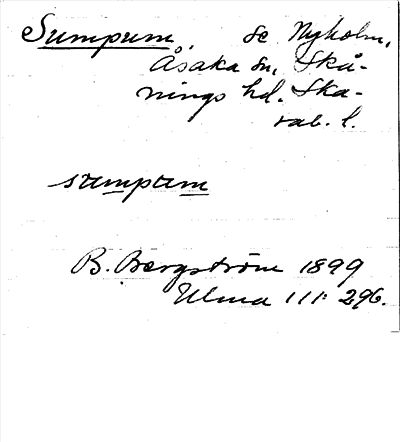 Sumpum, se Nyholm,
Åsaka sn, Skå-
nings hd. Ska-
rab. l.
sumpum
B. Bergström 1899
Ulma 111: 296.